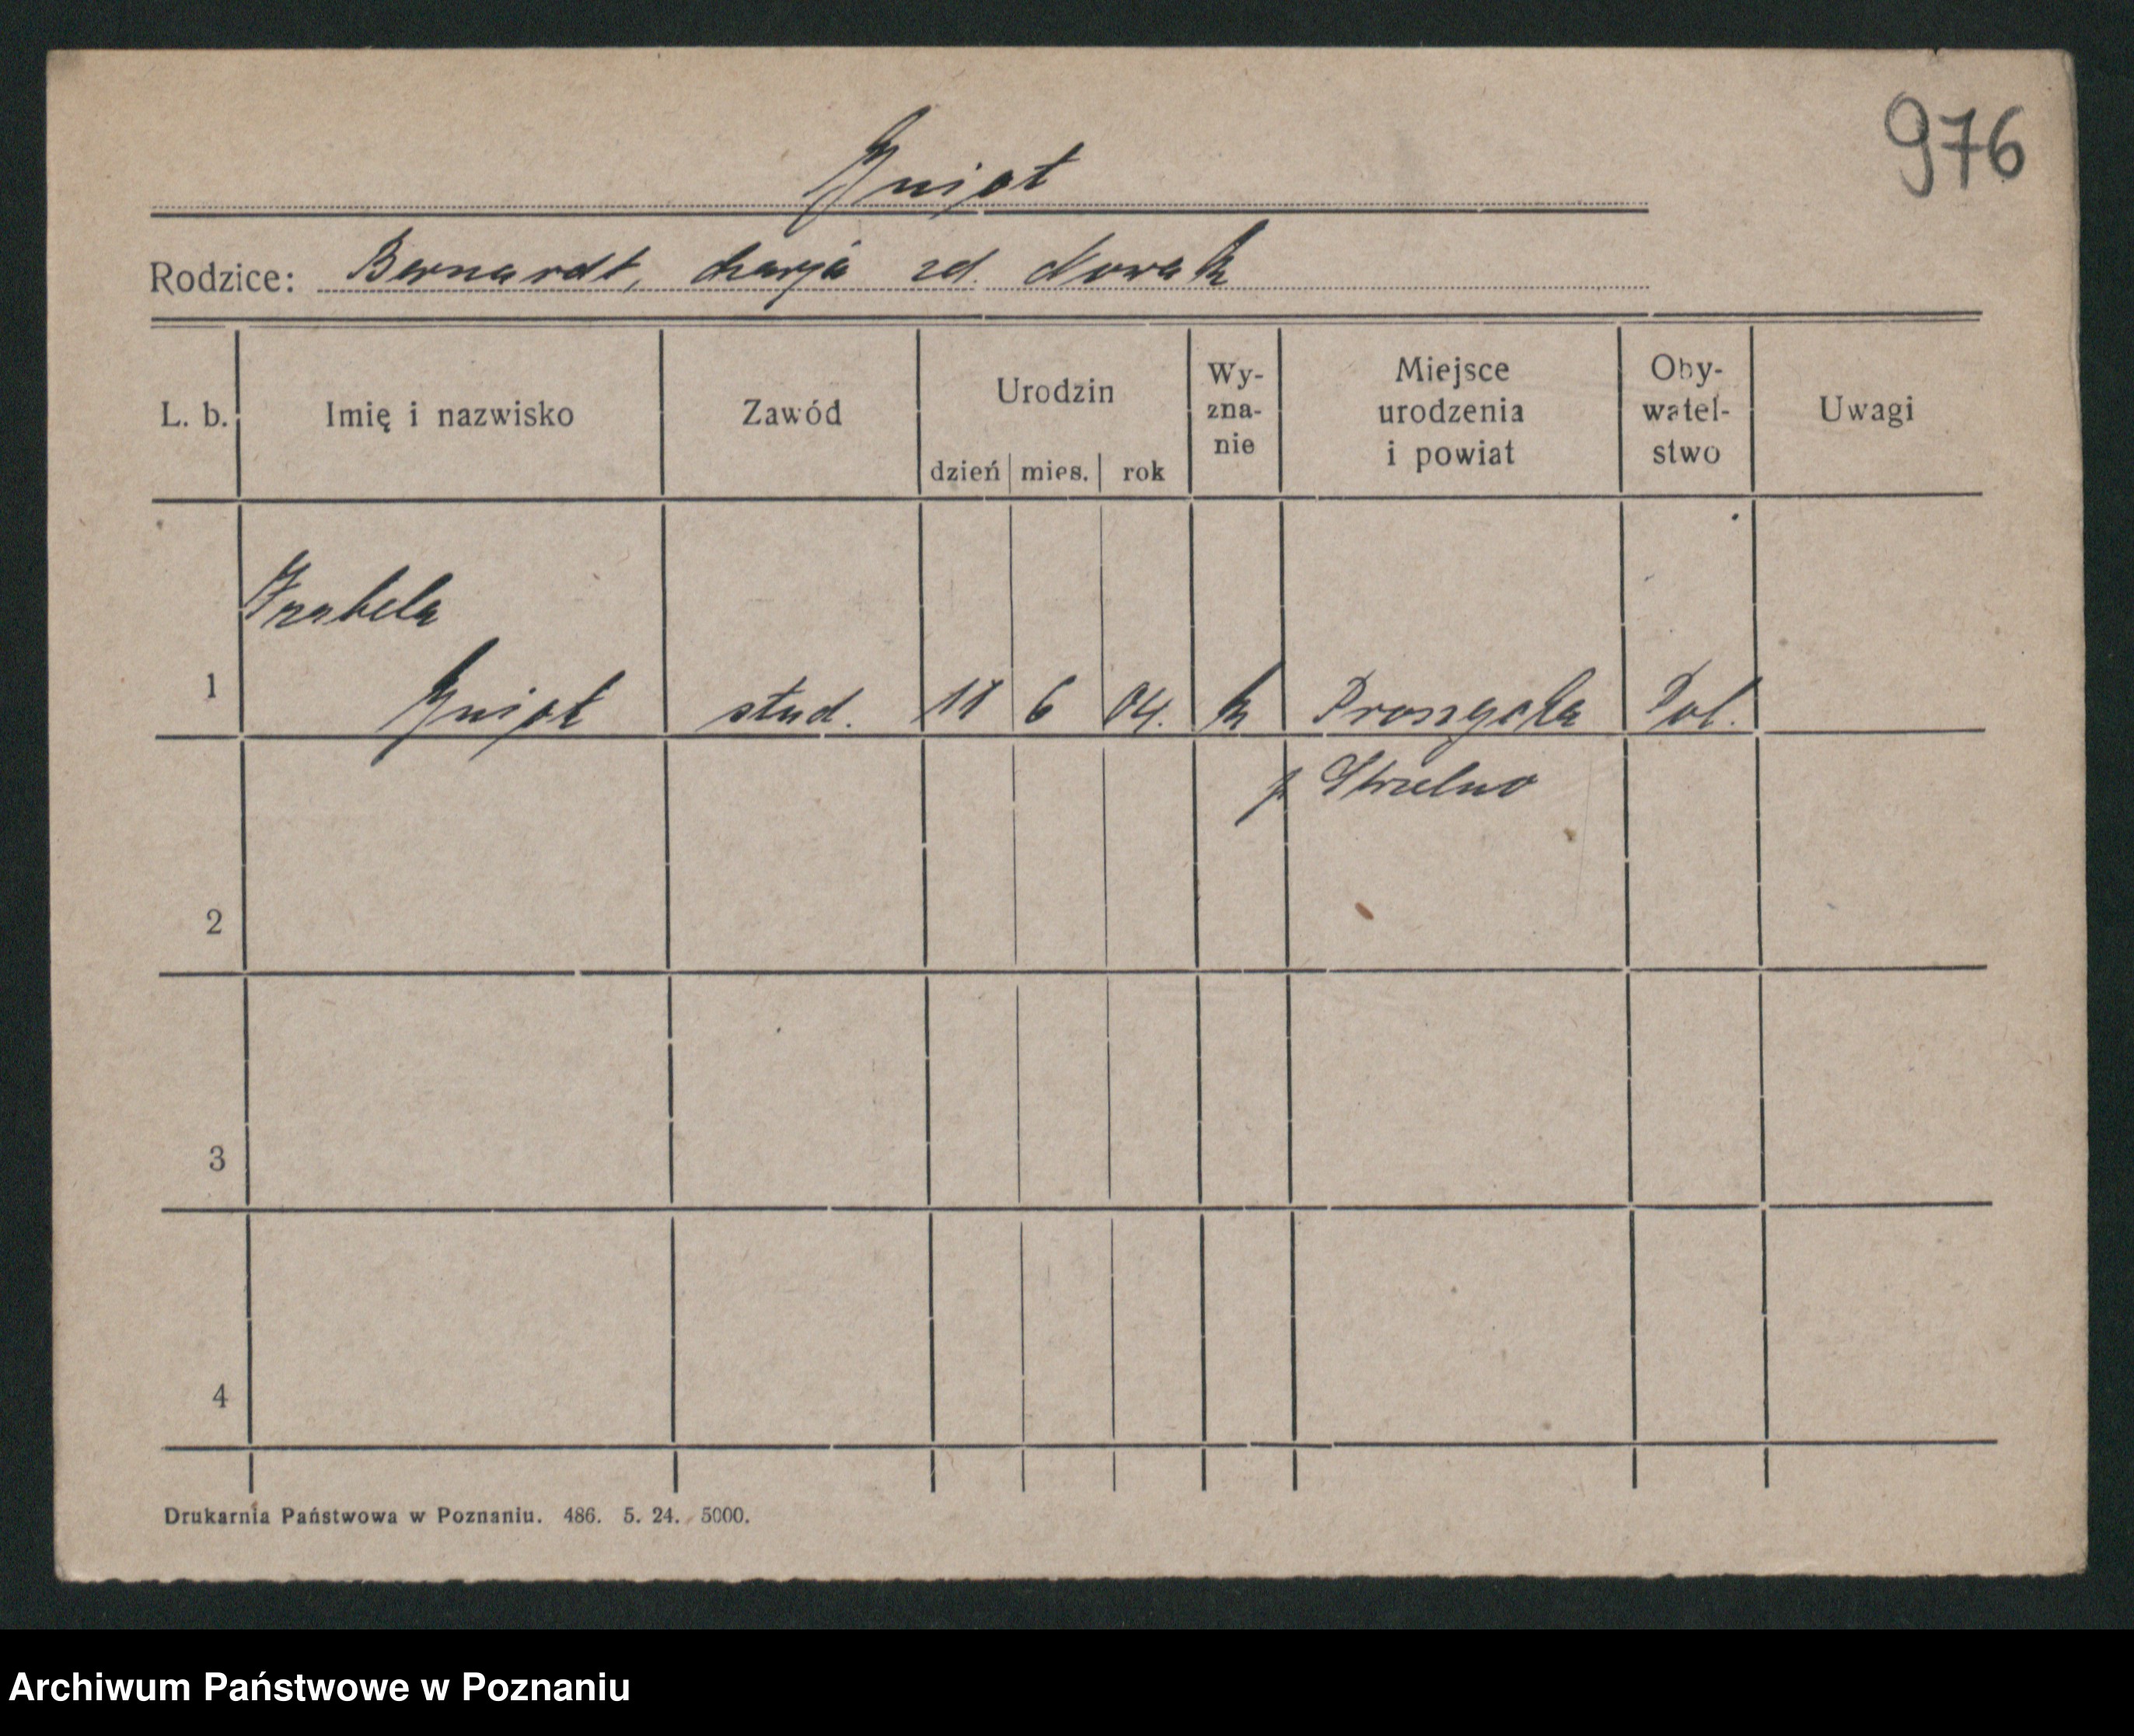 976
Gniot
Rodzice: Bernardt, Marja zd. Nowak
L. b. Imię i nazwisko Zawód Urodzin dzień mies. rok Wy-zna-nie Miejsce urodzenia i powiat Oby-watel-stwo Uwagi
Izabela
1 Gniot stud. 18 6 04. k Pol.
p Strzelno
2
3
4
Drukarnia Państwowa w Poznaniu. 486. 5. 24. 5000.
Archiwum Państwowe w Poznaniu